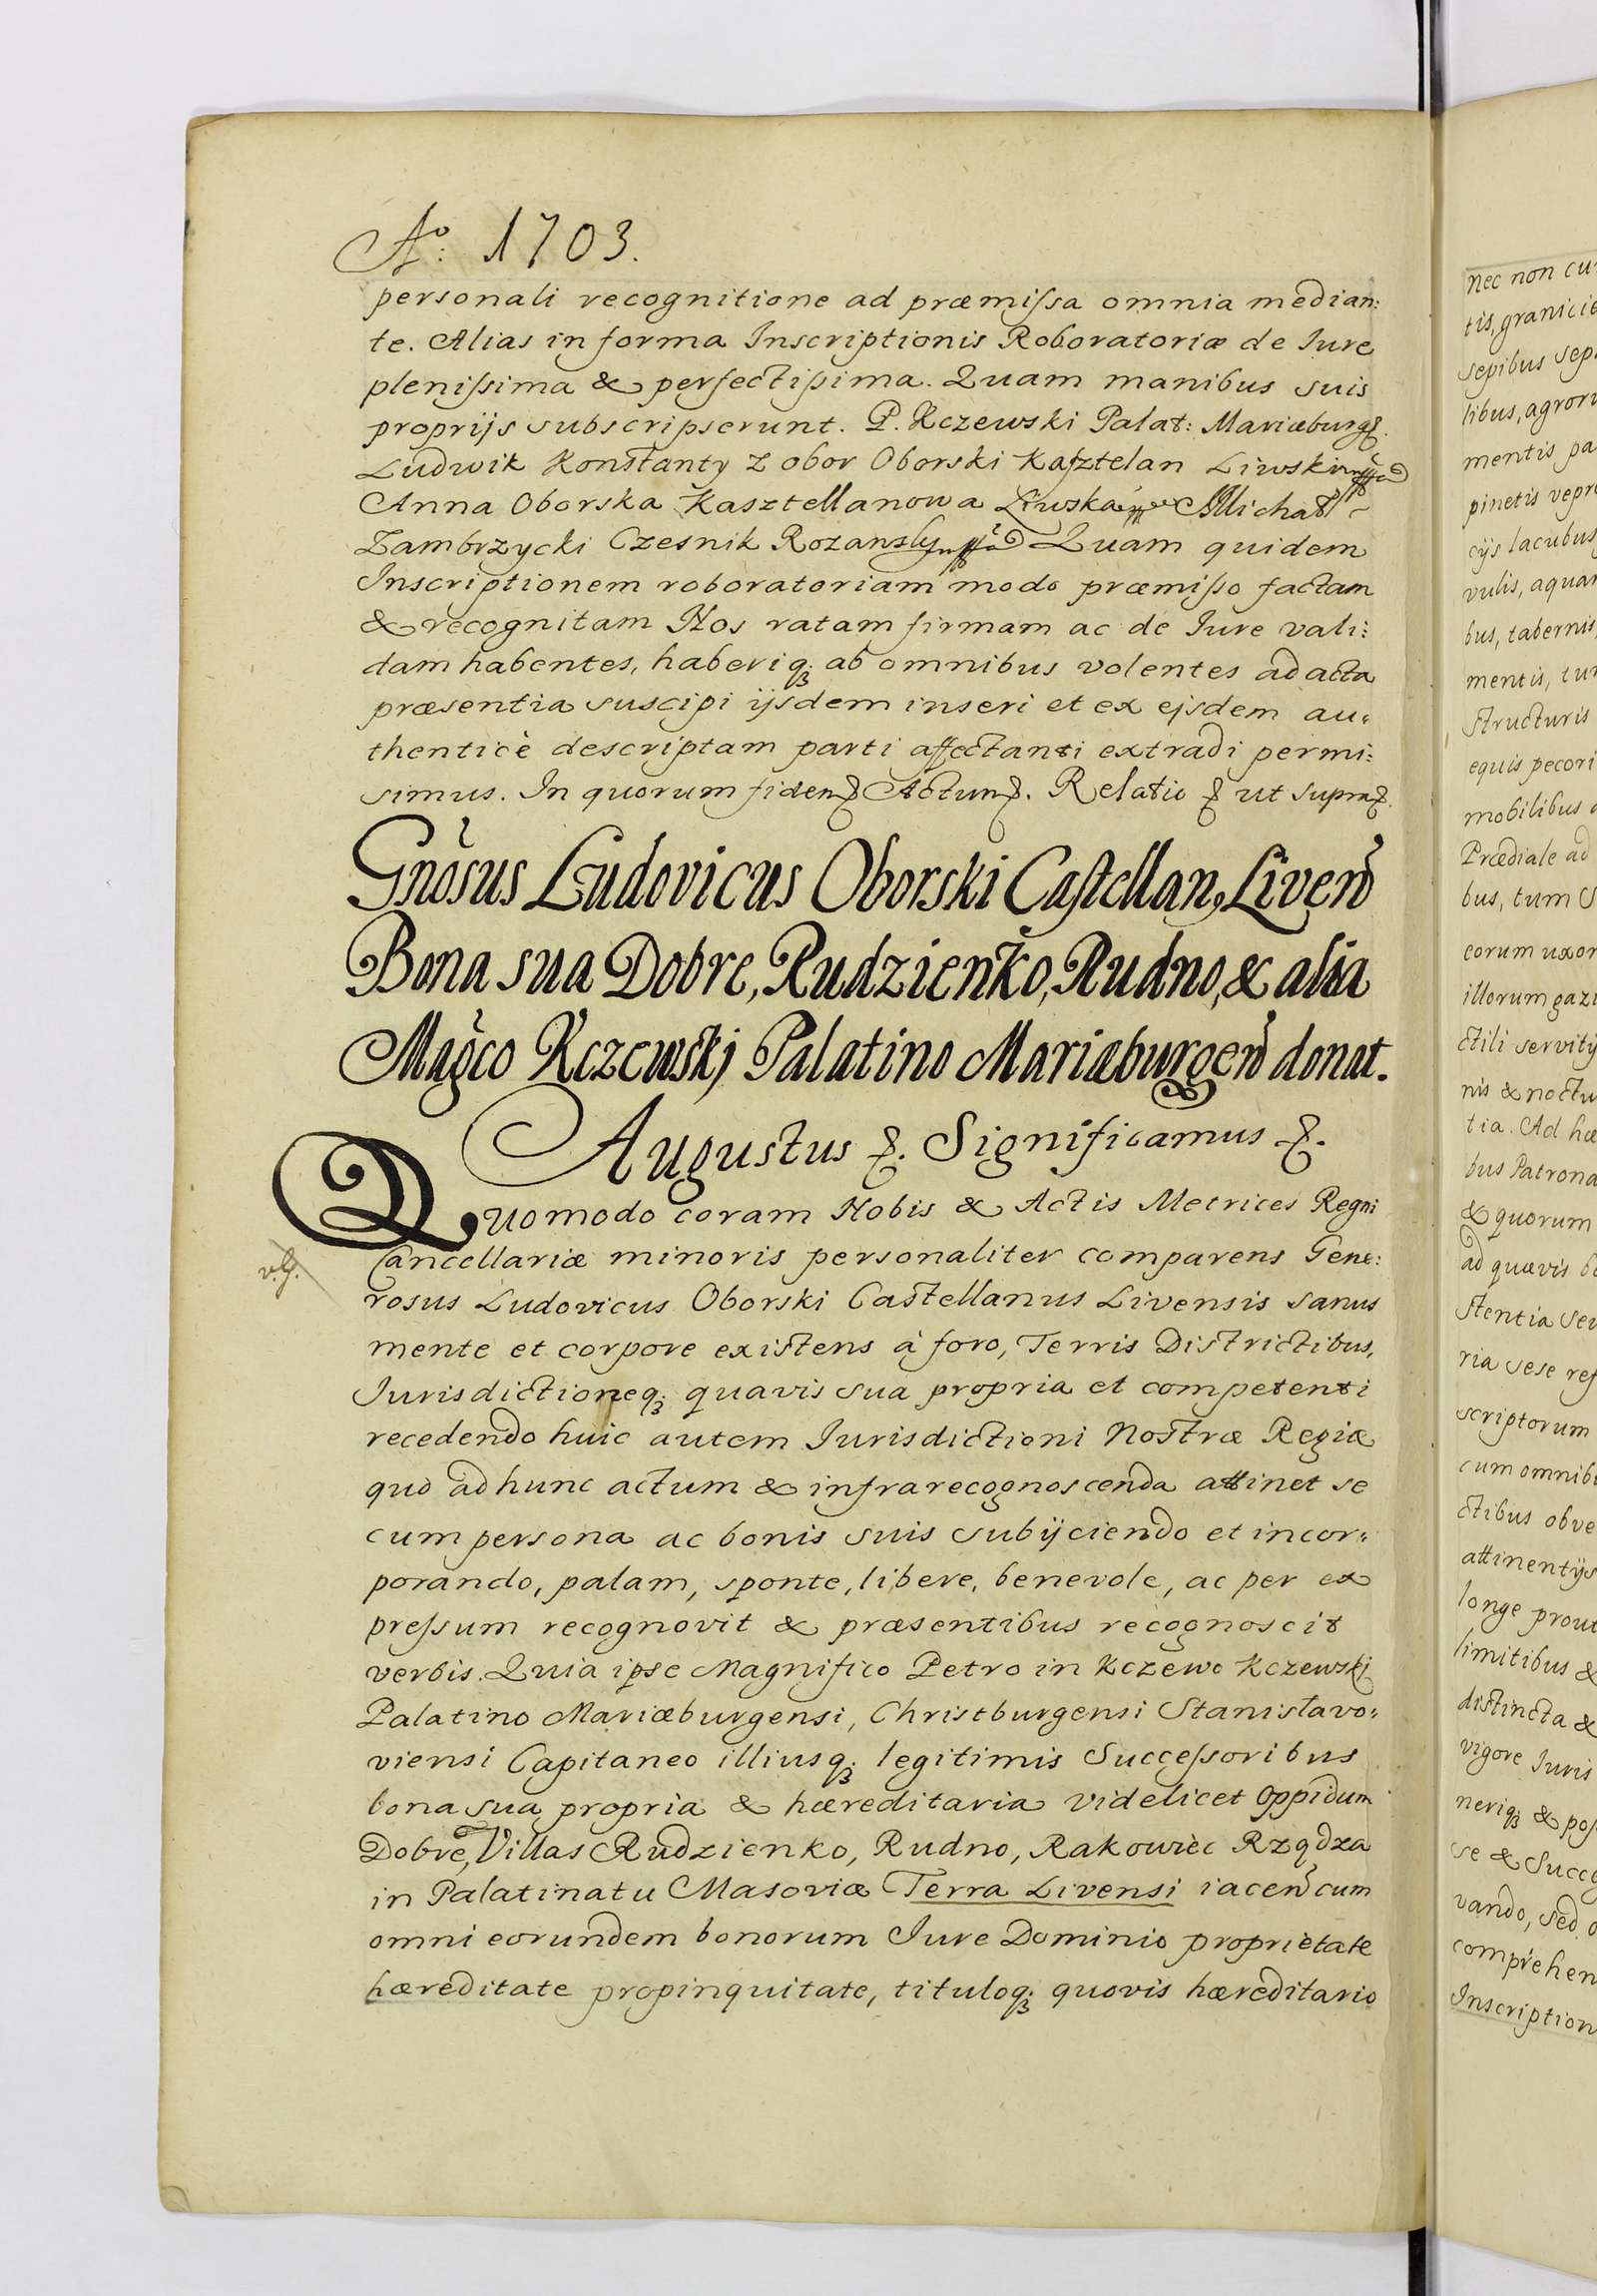 Aº: 1703.
personali recognitione ad præmiſsa omnia median:
te. Alias in forma Inscriptionis Roboratoriæ de Iure
pleniſsima & perfectiſsima. Quam manibus suis
proprijs subscripserunt. P. Kczewski Palat: Mariæburg
Ludwik Konstanty z obor Oborski Kaſztelan Liwski
Anna Oborska Kasztellanowa Liwska Michał
Zambrzycki Czesnik Rozansky Quam quidem
Inscriptionem roboratoriam modo præmiſso factam
& recognitam Nos ratam firmam ac de Iure vali:
dam habentes, haberiq; ab omnibus volentes ad acta
præsentia suscipi ijsdem inseri et ex ejsdem au:
thenticè descriptam parti affectanti extradi permi:
simus. In quorum fidem Actum. Relatio ut supra.
Gnosus Ludovicus Oborski Caſtellan, Liven
Bona sua Dobre, Rudzienko, Rudno, & alia
Magco Kczewskj Palatino Mariæburgen donat.
Augustus . Significamus .
Quomodo coram Nobis & Actis Metrices Regni
Cancellariæ minoris personaliter comparens Gene:
rosus Ludovicus Oborski Castellanus Livensis sanus
mente et corpore existens à foro, Terris Districtibus,
Jurisdictioneq; quavis sua propria et competenti
recedendo huic autem Iurisdictioni Nostræ Regiæ
quò ad hunc actum & infrarecognoscenda attinet se
cum persona ac bonis suis subijciendo et incor:
porando, palam, sponte, libere, benevole, ac per ex
preſsum recognovit & præsentibus recognoscit
verbis. Quia ipse Magnifico Petro in Kczewo Kczewskj
Palatino Mariæburgensi, Christburgensi Stanisławo:
viensi Capitaneo illiusq; legitimis Succeſsoribus
bona sua propria & hæreditaria videlicet Oppidum
Dobre, Villas Rudzienko, Rudno, Rakowiec Rządza
in Palatinatu Masoviæ Terra Livensi iacen cum
omni eorundem bonorum Iure Dominio proprietate
hæreditate propinquitate, tituloq; quovis hæreditario
nec non
tis, granicie
sepibus
libus, agror
mentis
pinetis
cijs lacubus,
vulis, aquar
bus, tabernis,
mentis,
structuris
equis pecori
mobilibus
Prædiale ad
bus, tum
eorum uxor
illorum
ctili servitij
nis & noctu
tia. Ad hæ
bus Patrona
& quorum
ad quævis
stentia
ria sese
scriptorum
cum omnib
ctibus obve
attinentijs
longe prout
limitibus &
distincta &
vigore Iuris
neriq; &
se &
vando, sed
comprehen
Inscription